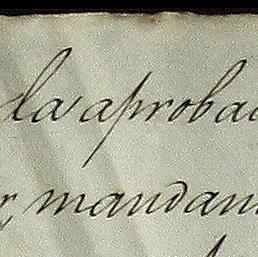 la aprobac
r, mandan